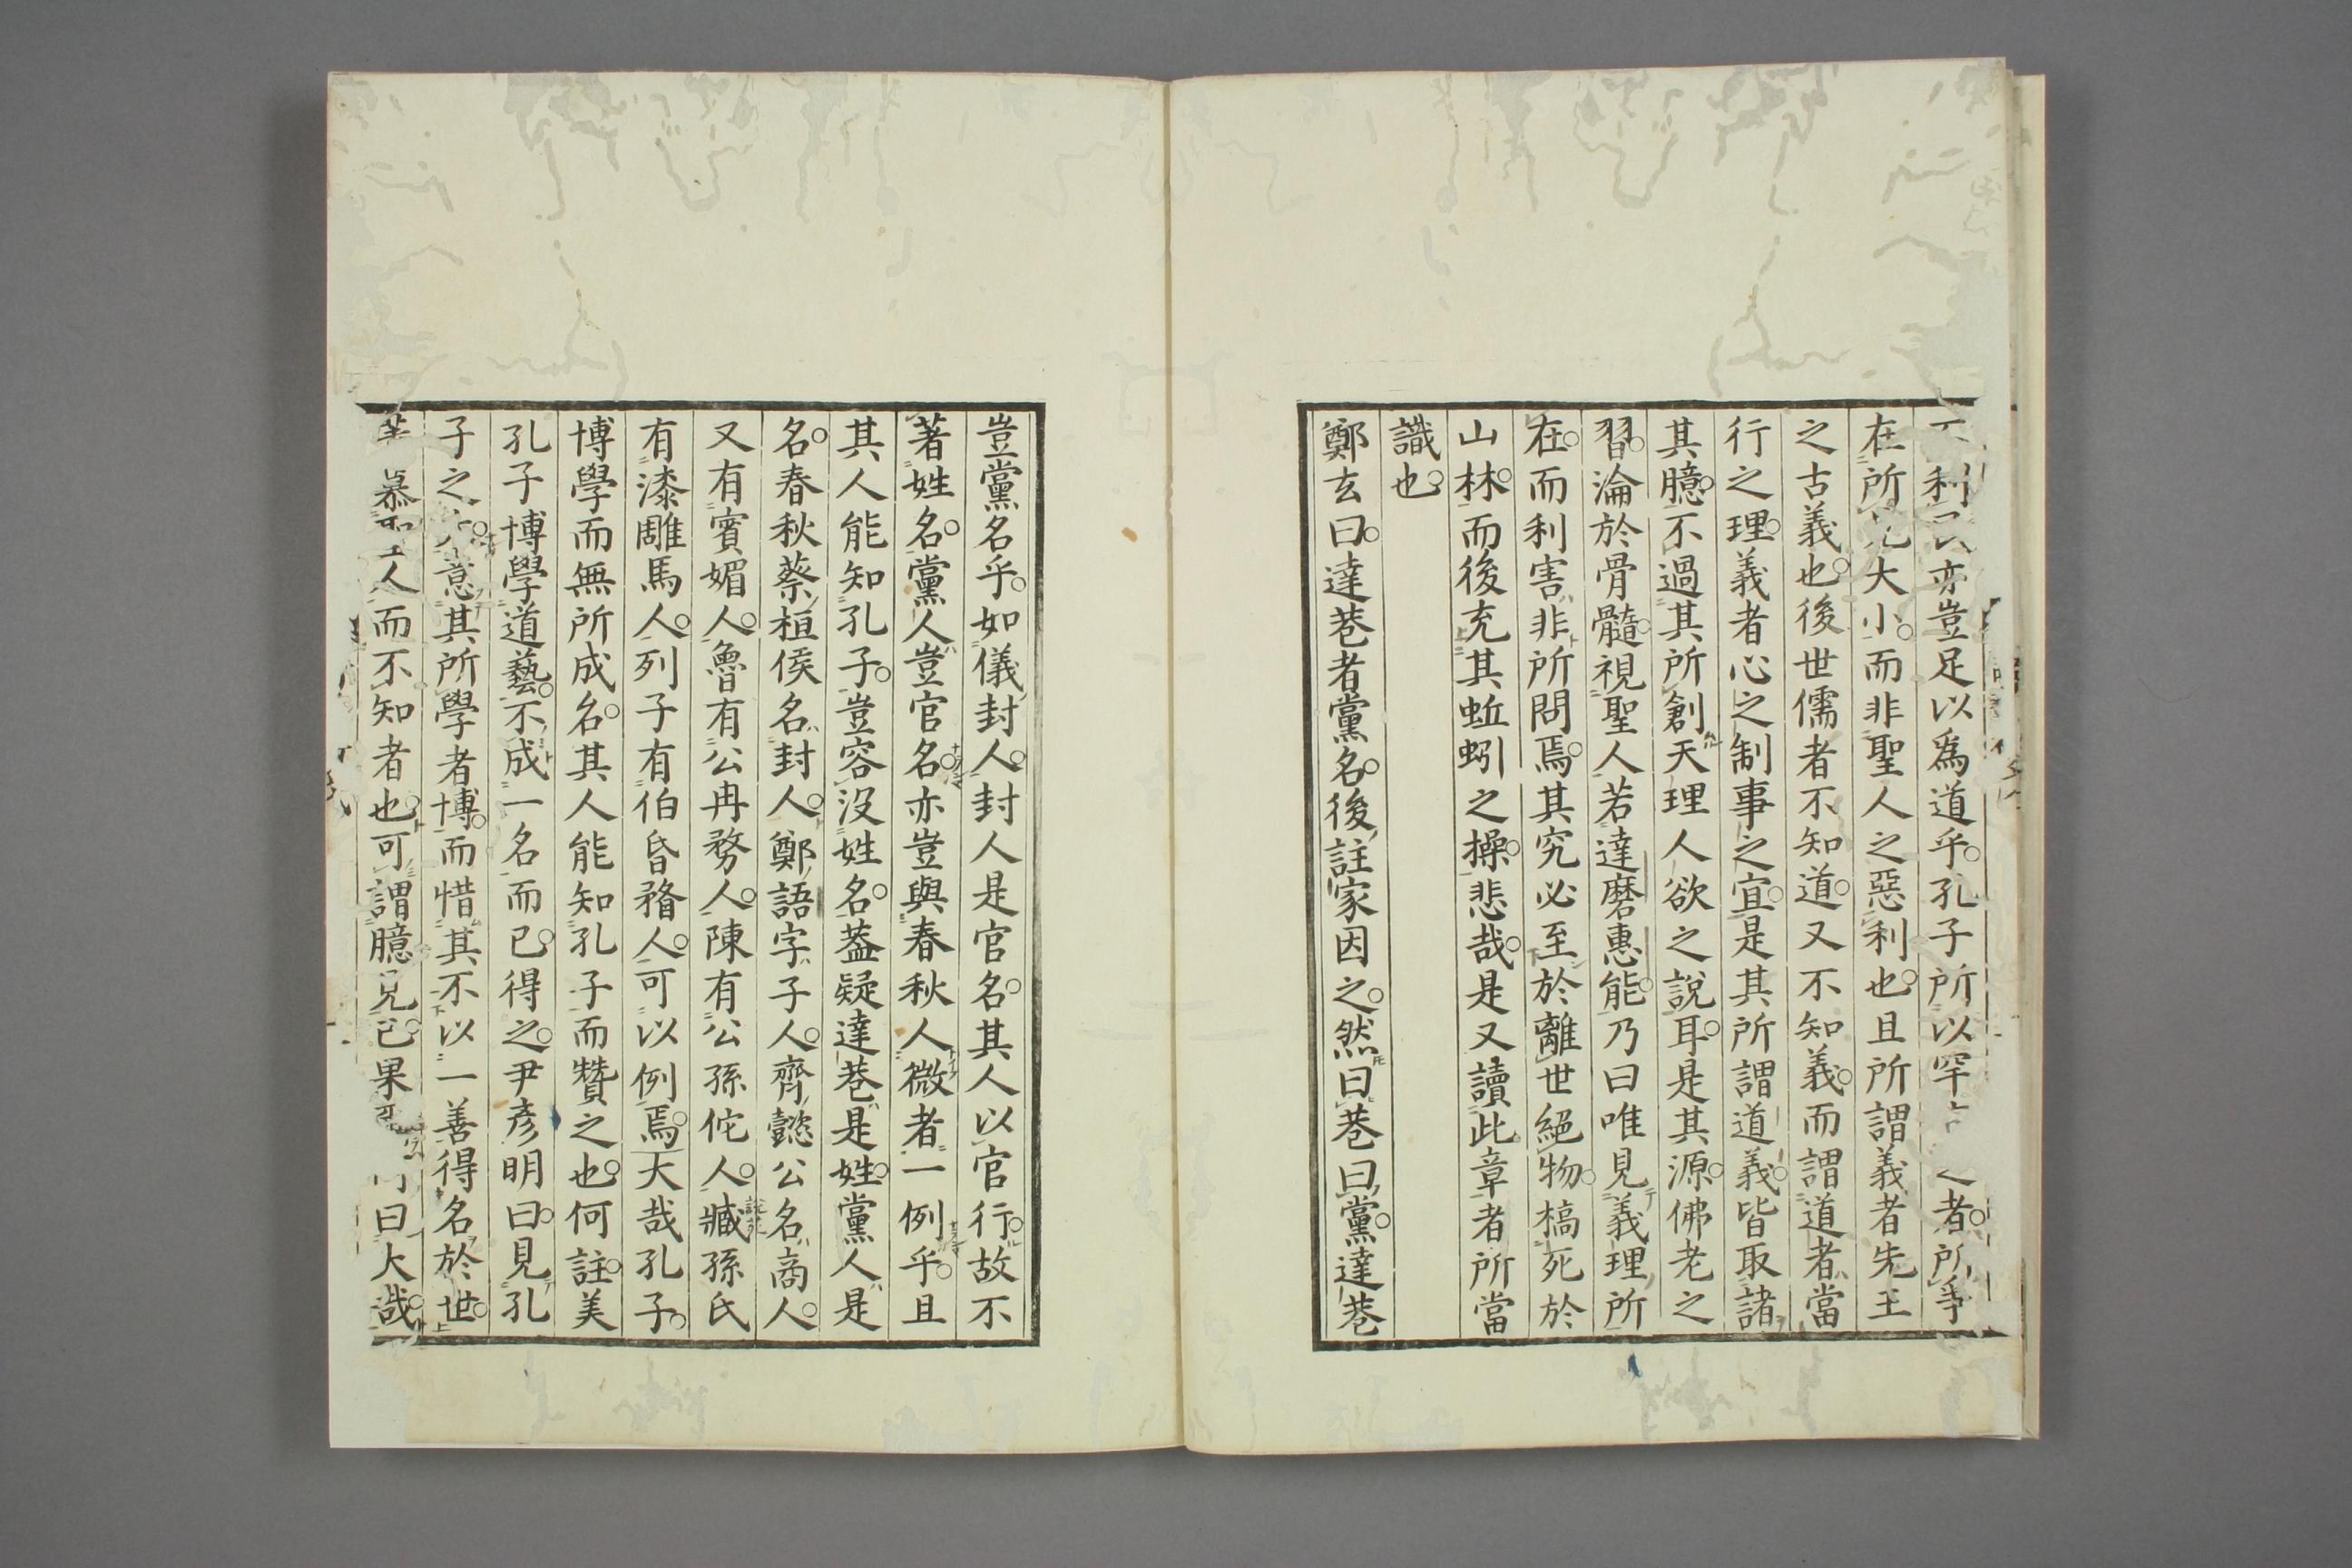 利民亦豈足以爲道乎孔子所以罕言之者所爭
在所見大小而非聖人之惡利也且所謂義者先王
之古義也後世儒者不知道又不知義而謂道者當
行之理義者心之制事之宜是其所謂道義皆取諸
其臆不過其所創天理人欲之說耳是其源佛老之
習淪於骨髓視聖人若達磨惠能乃曰唯見義理所
在而利害非所問焉其究必至於離世絕物槁死於
山林而後充其蚯蚓之操悲哉是又讀此章者所當
識也
鄭玄曰達巷者黨名後註家因之然曰巷曰黨達巷
豈黨名乎如儀封人封人是官名其人以官行故不
著姓名黨人豈官名亦豈與春秋人微者一例乎且
其人能知孔子豈容沒姓名葢疑達巷是姓黨人是
名春秋蔡桓侯名封人鄭語字子人齊懿公名商人
又有賓媚人魯有公冉務人陳有公孫佗人臧孫氏
有漆雕馬人列子有伯昏瞀人可以例焉大哉孔子
博學而無所成名其人能知孔子而贊之也何註美
孔子博學道藝不成一名而已得之尹彥明曰見孔
子之大意其所學者博而惜其不以一善得名於世
慕聖人而不知者也可謂臆見已果曰大哉